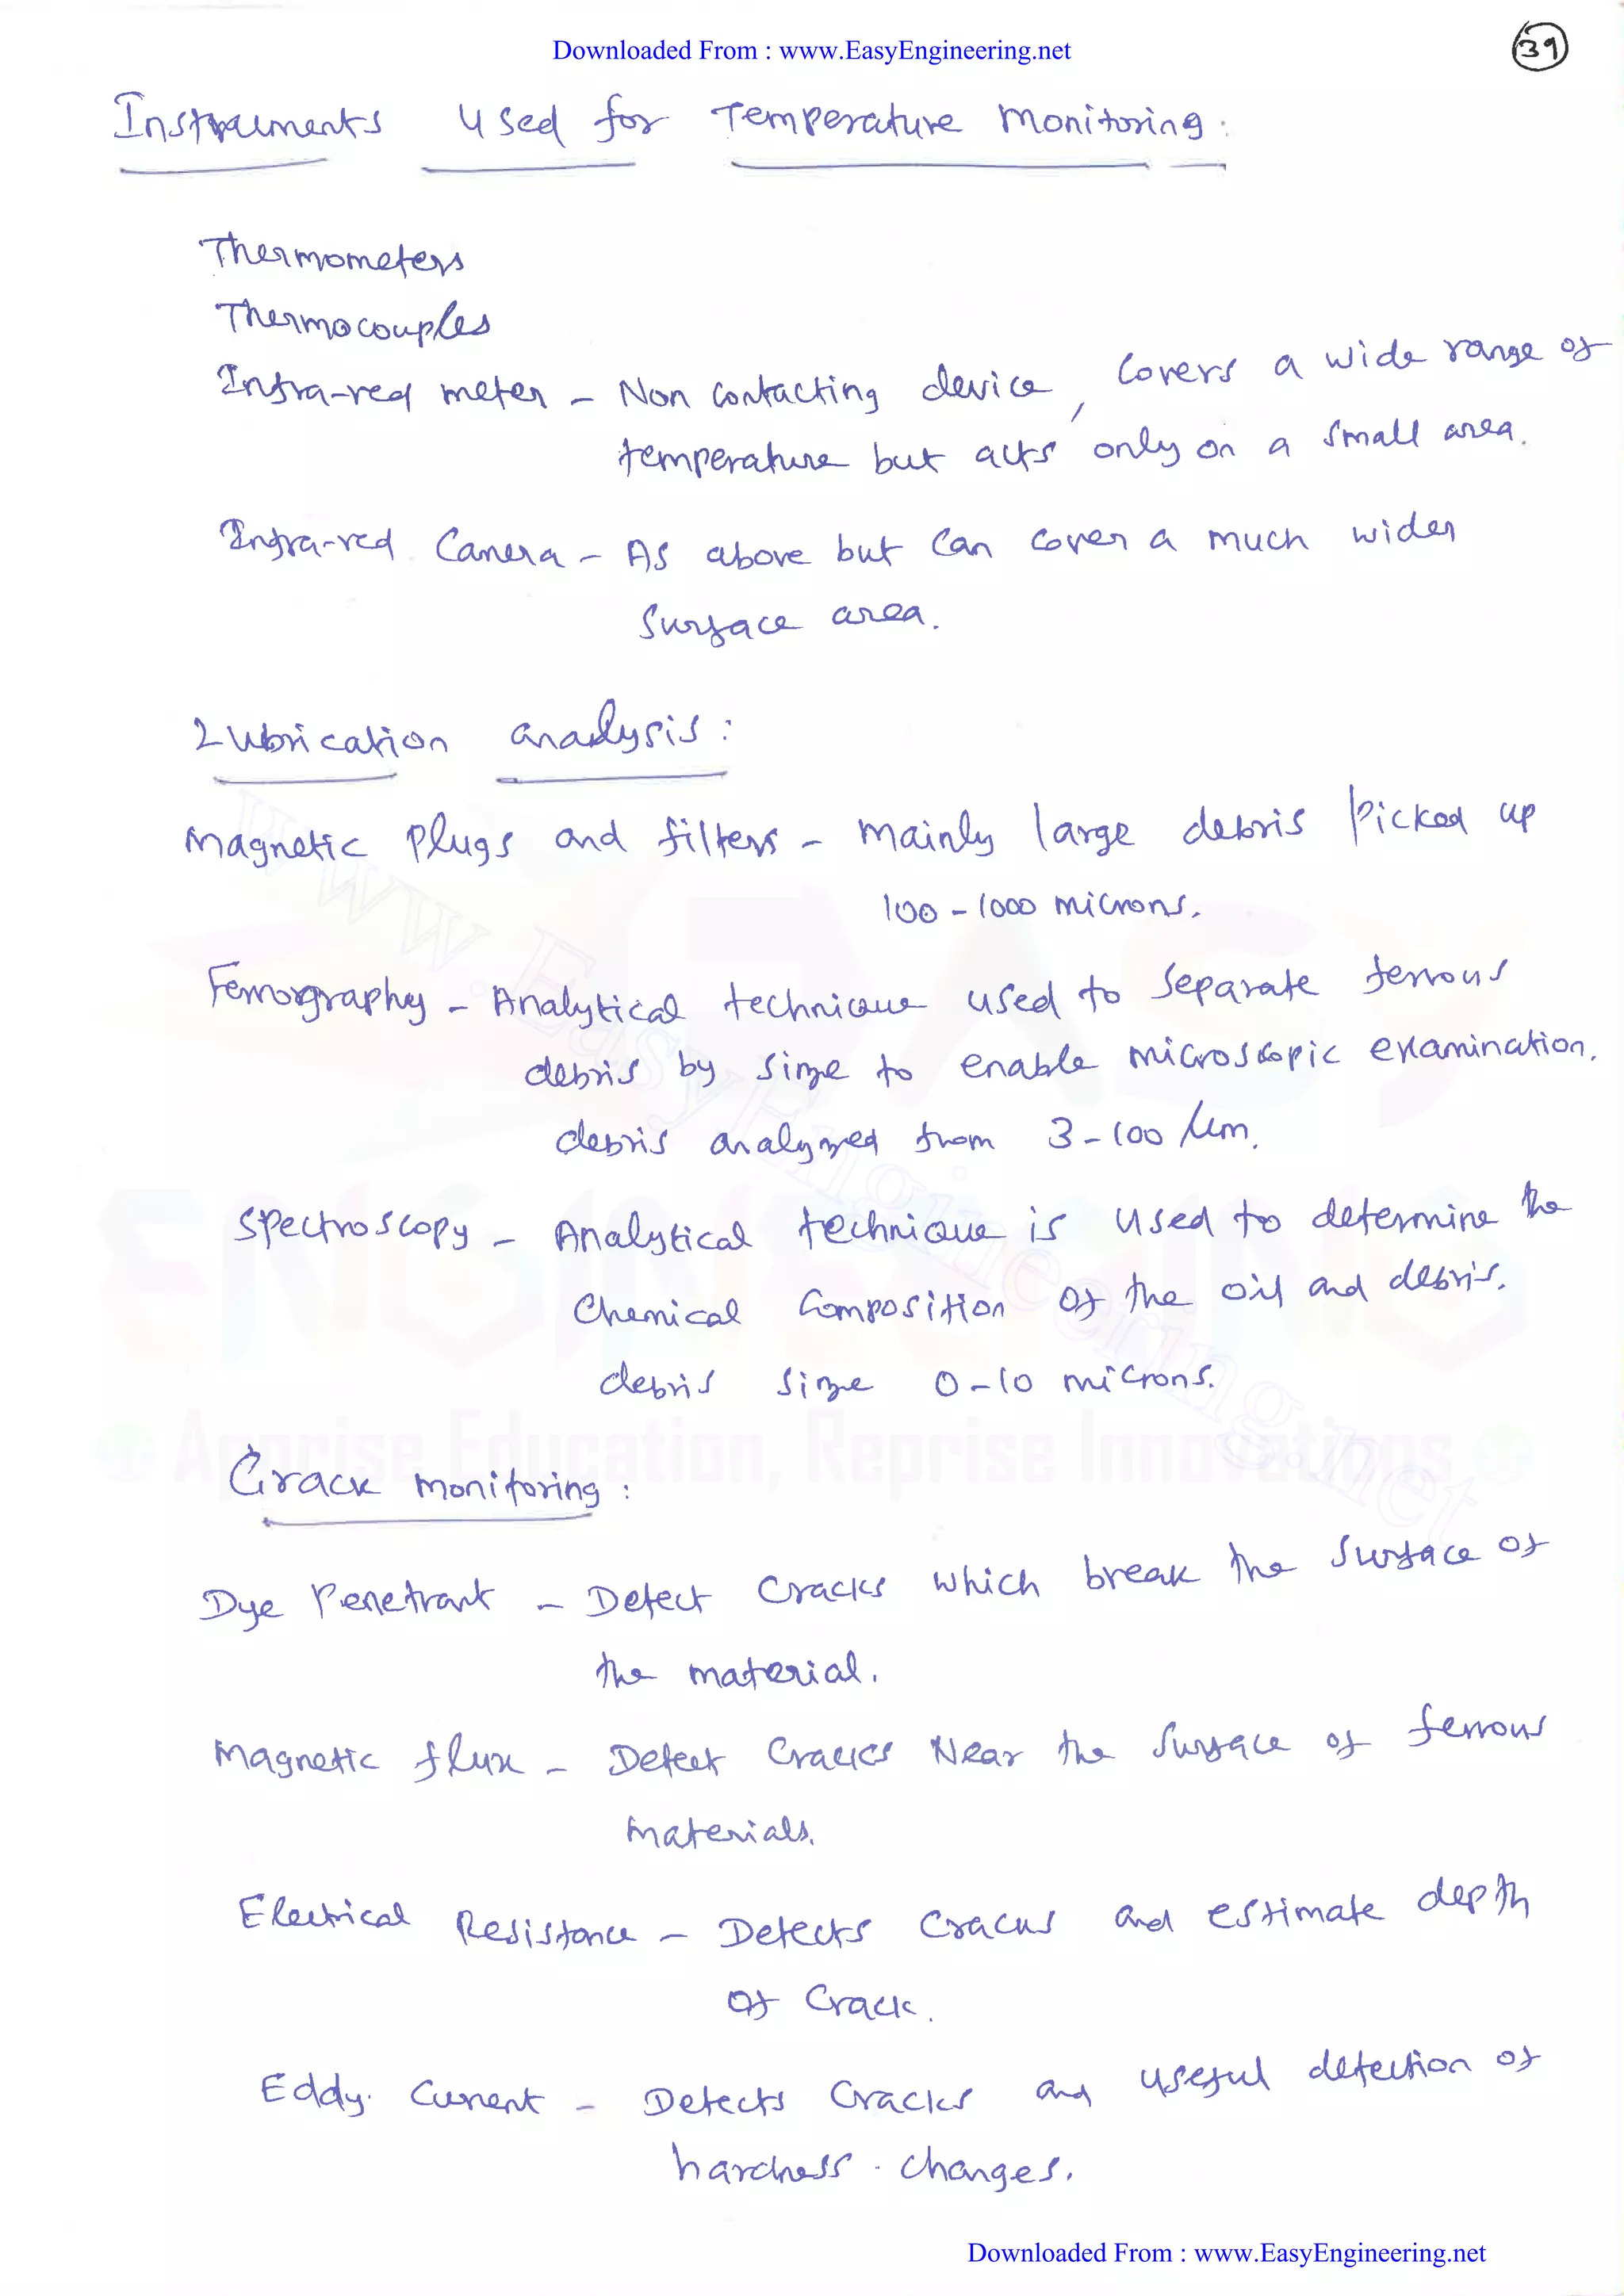 Downloaded From : www.EasyEngineering.net
39
Instruments used for Temperature monitoring :
Thermometers
Thermocouples
Infra-red meter - Non Contacting device, Covers a wide range of
temperature but acts only on a small area.
Infra-red Camera - As above but Can Cover a much wider
Surface area.
Lubrication analysis :
Magnetic plugs and filters - mainly large debris Picked up
100 - 1000 microns.
Ferrography - Analytical technique used to Separate ferrous
debris by size to enable microscopic examination.
debris analyzed from 3 - 100 μm.
Spectroscopy - Analytical technique is used to determine the
Chemical Composition of the oil and debris.
debris size 0 - 10 microns.
Crack monitoring :
Dye Penetrant - Detect Cracks which break the Surface of
the material.
Magnetic flux - Detect Cracks Near the Surface of ferrous
materials.
Electrical Resistance - Detects Cracks and estimate depth
of Crack.
Eddy Current - Detects Cracks and useful detection of
hardness changes.
www.EasyEngineering.net
EASY
ENGINEERING
Apprise Education, Reprise Innovations
Downloaded From : www.EasyEngineering.net